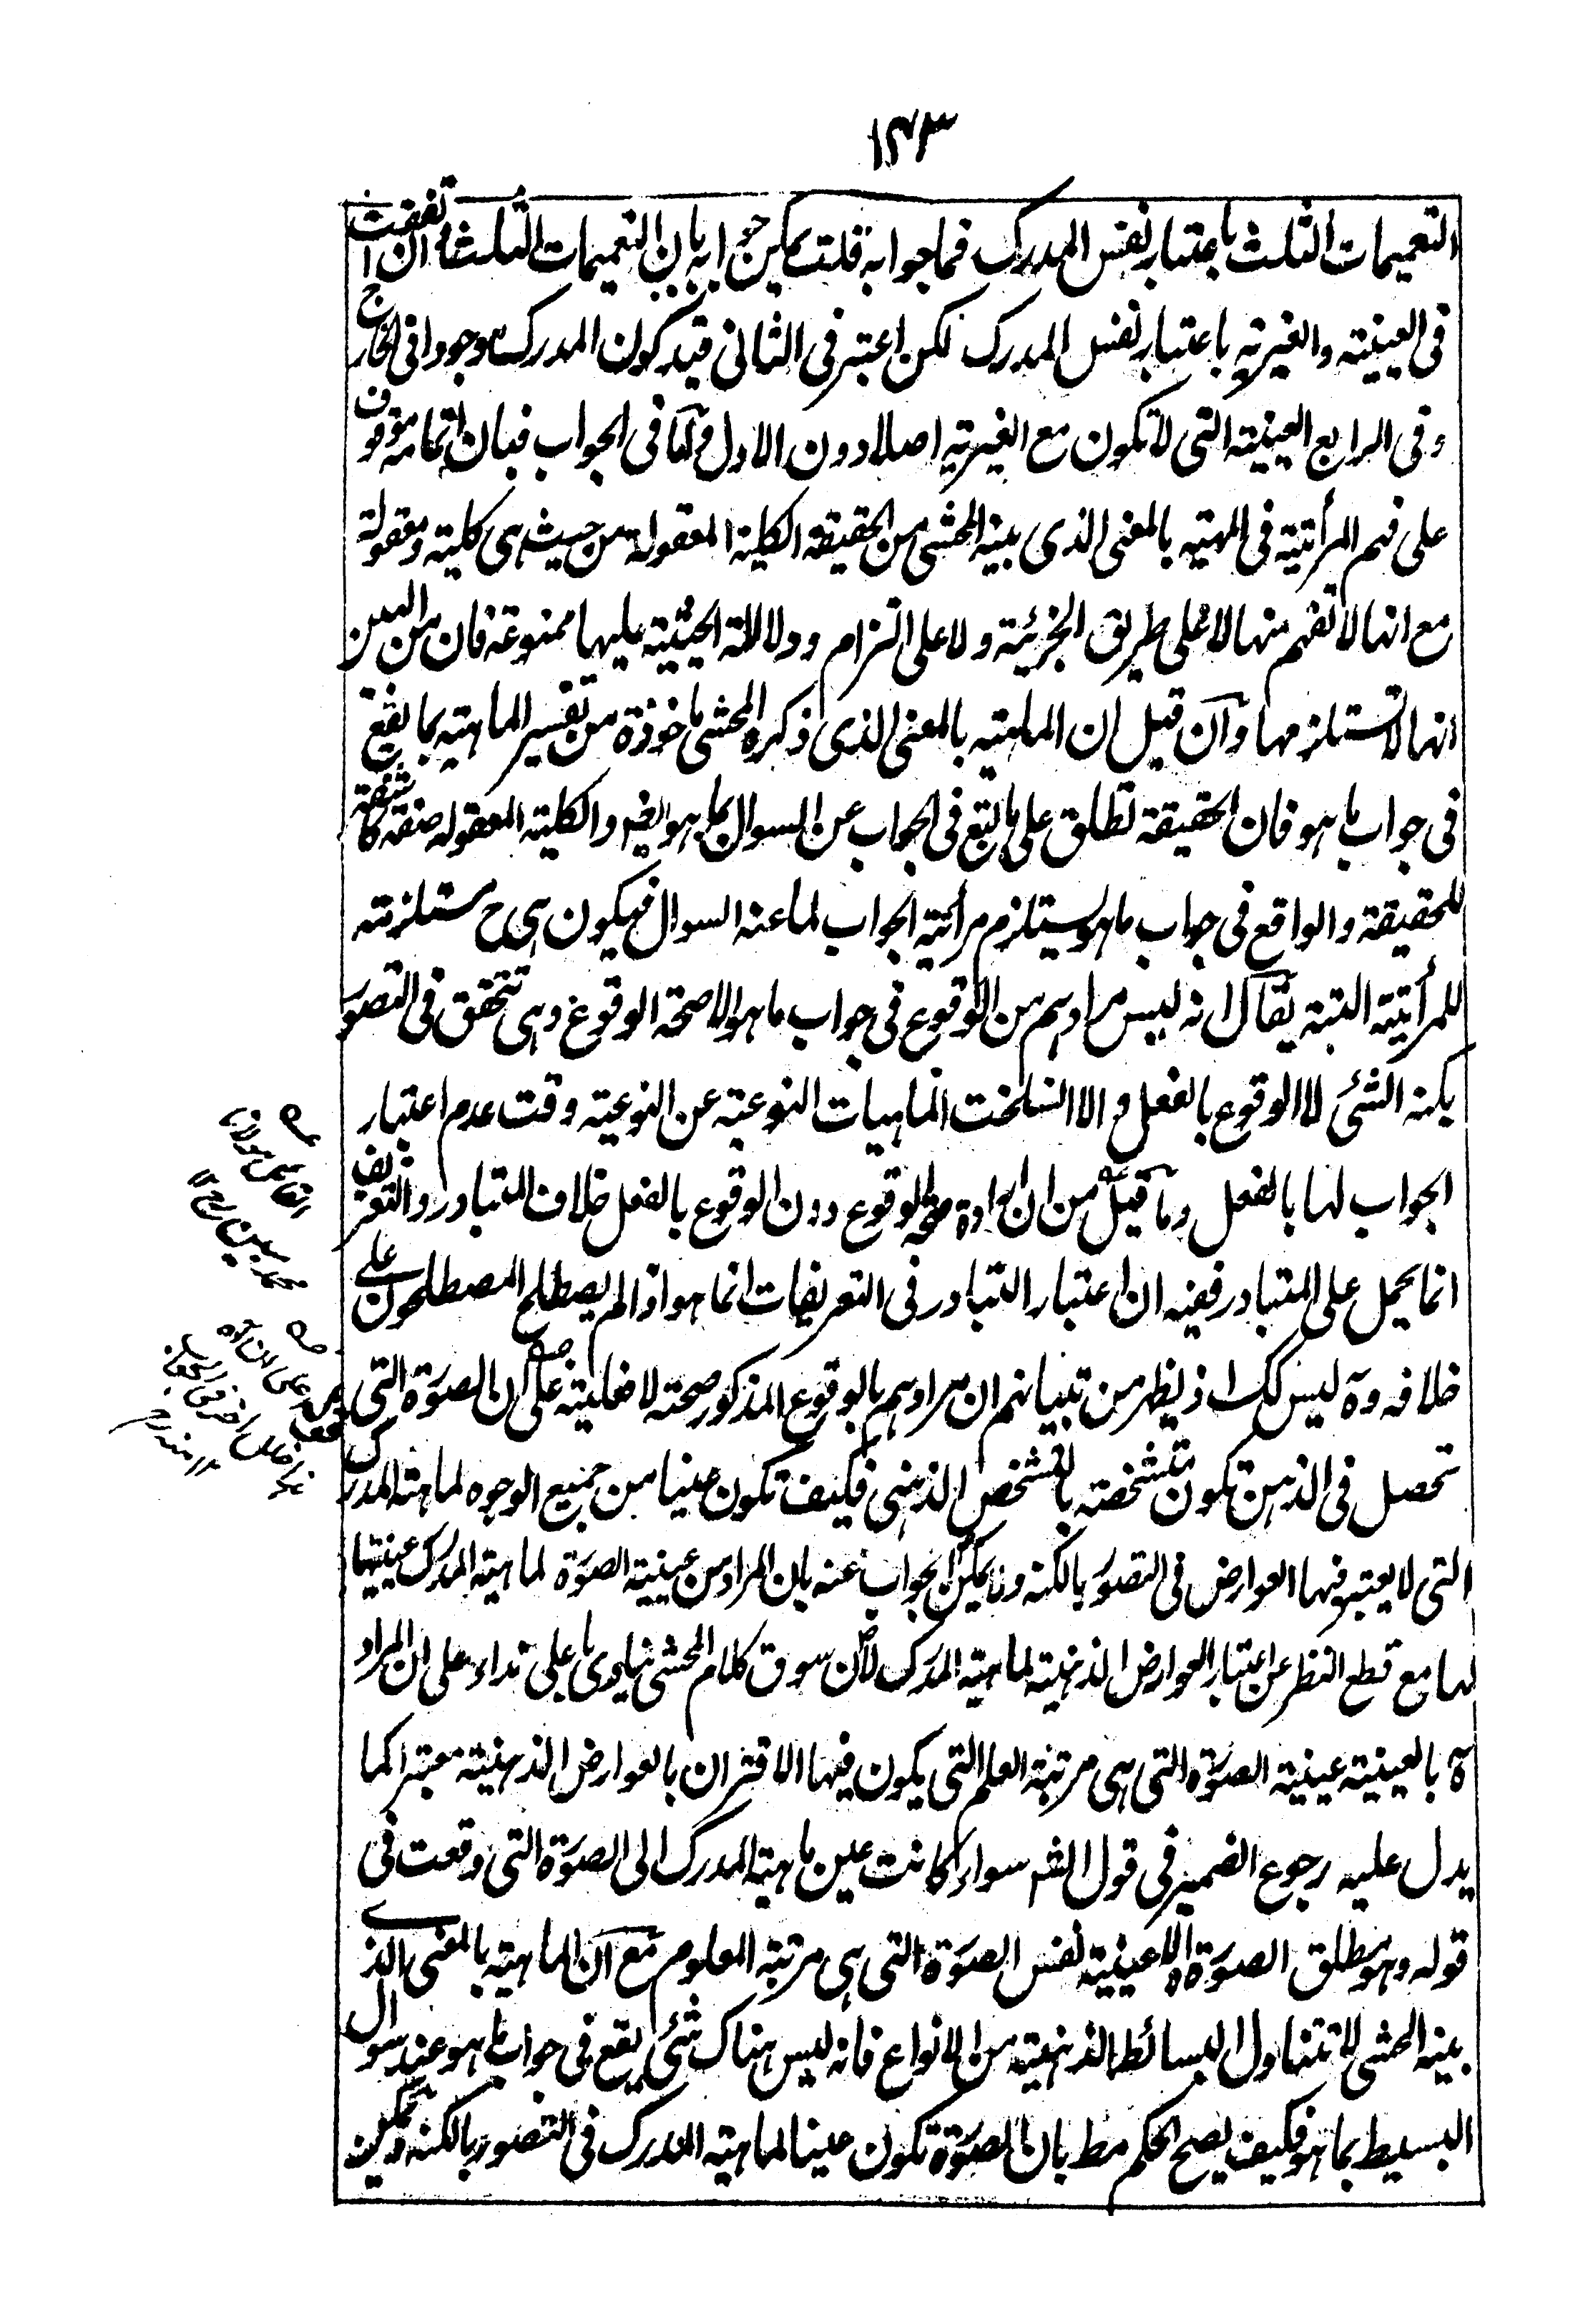 ١٤٣
التعميمات الثلث باعتبار نفس المدرك فما جوابه قلت يمكن جوابه بان التعميمات الثلث وان اتفقت
فى العينية والغيرية باعتبار نفس المدرك لكن اعتبر فى الثانى قيد كون المدرك موجودا فى الخارج
وفى الرابع العينية التى لا تكون مع الغيرية اصلا دون الاول وآما فى الجواب فبان اتمامه موقوف
على فهم المرأتية فى المهية بالمعنى الذى بينه المحشى من الحقيقة الكلية المعقولة من حيث هى كلية ومقولة
مع انها لا تفهم منها لا على طريق الجزئية ولا على التزام ودلالة الحيثية عليها ممنوعة فان من البين
انها لا تستلزمها وآن قيل ان الماهية بالمعنى الذى ذكره المحشى ماخوذة من تفسير الماهية بما يقع
فى جواب ما هو فان الحقيقة تطلق على ما يقع فى الجواب عن السوال بما هو والكلية المعقولة صفة كاشفة
للحقيقة والواقع فى جواب ما هو يستلزم مرأتية الجواب لما عنه السوال فيكون هى ح مستلزمته
للمرأتية البتة يقال انه ليس مرادهم من الوقوع فى جواب ما هو الا صحة الوقوع وهى تتحقق فى التصور
بكنه الشئ لا الوقوع بالفعل والا انسلخت الماهيات النوعية عن النوعية وقت عدم اعتبار
الجواب لها بالفعل وما قيل من ان ارادة صحة الوقوع دون الوقوع بالفعل خلاف المتبادر والتعريف
انما يحمل على المتبادر ففيه ان اعتبار التبادر فى التعريفات انما هو اذا لم يصطلح المصطلحون على
خلافه وه ليس كك اذ يظهر من تبيانهم ان مرادهم بالوقوع المذكور صحته لا فعليته على ان الصورة التى
تحصل فى الذهن تكون متشخصة بالتشخص الذهنى فكيف تكون عينا من جميع الوجوه لماهية المدرك
التى لا يعتبر فيها العوارض فى التصور بالكنه ولا يمكن الجواب عنه بان المراد من عينية الصورة لماهية المدرك عينيتها
لها مع قطع النظر عن اعتبار العوارض الذهنية لماهية المدرك لان سوق كلام المحشى ينادى باعلى نداء على ان المراد
ه بالعينية عينية الصورة التى هى مرتبة العلم التى يكون فيها الاقتران بالعوارض الذهنية معتبرا كما
يدل عليه رجوع الضمير فى قول الشم سواء كانت عين ماهية المدرك الى الصورة التى وقعت فى
قوله وهو مطلق الصورة اه لا عينية نفس الصورة التى هى مرتبة المعلوم مع ان الماهية بالمعنى الذى
بينه المحشى لا تتناول البسائط الذهنية من الانواع فانه ليس هناك شئ يقع فى جواب ما هو عند سوال
البسيط بما هو فكيف يصح الحكم مط بان الصورة تكون عينا لماهية المدرك فى التصور بالكنه ويمكن